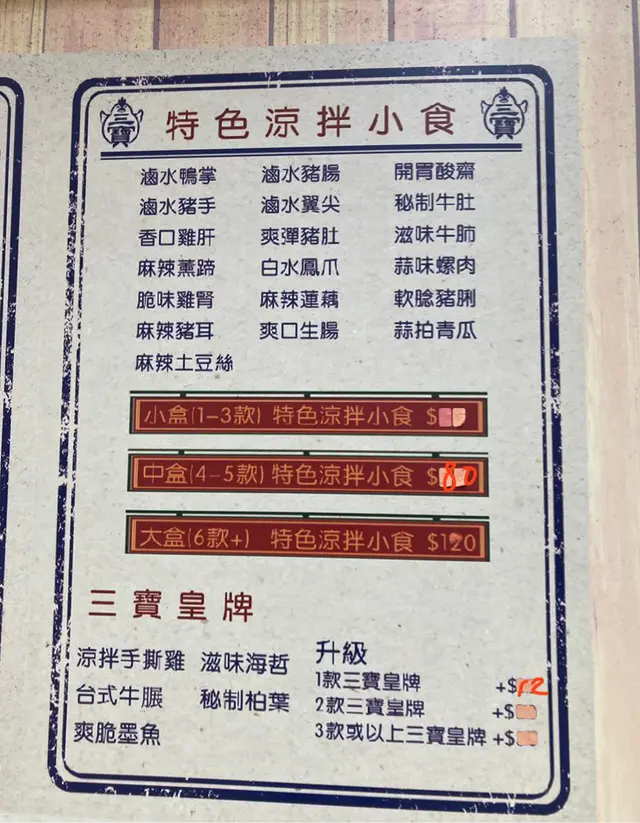 三寶 特色涼拌小食 三寶
滷水鴨掌 滷水豬腸 開胃酸齋
滷水豬手 滷水翼尖 秘制牛肚
香口雞肝 爽彈豬肚 滋味牛肺
麻辣薰蹄 白水鳳爪 蒜味螺肉
脆味雞腎 麻辣蓮藕 軟腍豬脷
麻辣豬耳 爽口生腸 蒜拍青瓜
麻辣土豆絲
小盒(1-3款) 特色涼拌小食 $
中盒(4-5款) 特色涼拌小食 $80
大盒(6款+) 特色涼拌小食 $120
三寶皇牌
涼拌手撕雞 滋味海哲
台式牛𦟌 秘制柏葉
爽脆墨魚
升級
1款三寶皇牌 +$12
2款三寶皇牌 +$
3款或以上三寶皇牌 +$